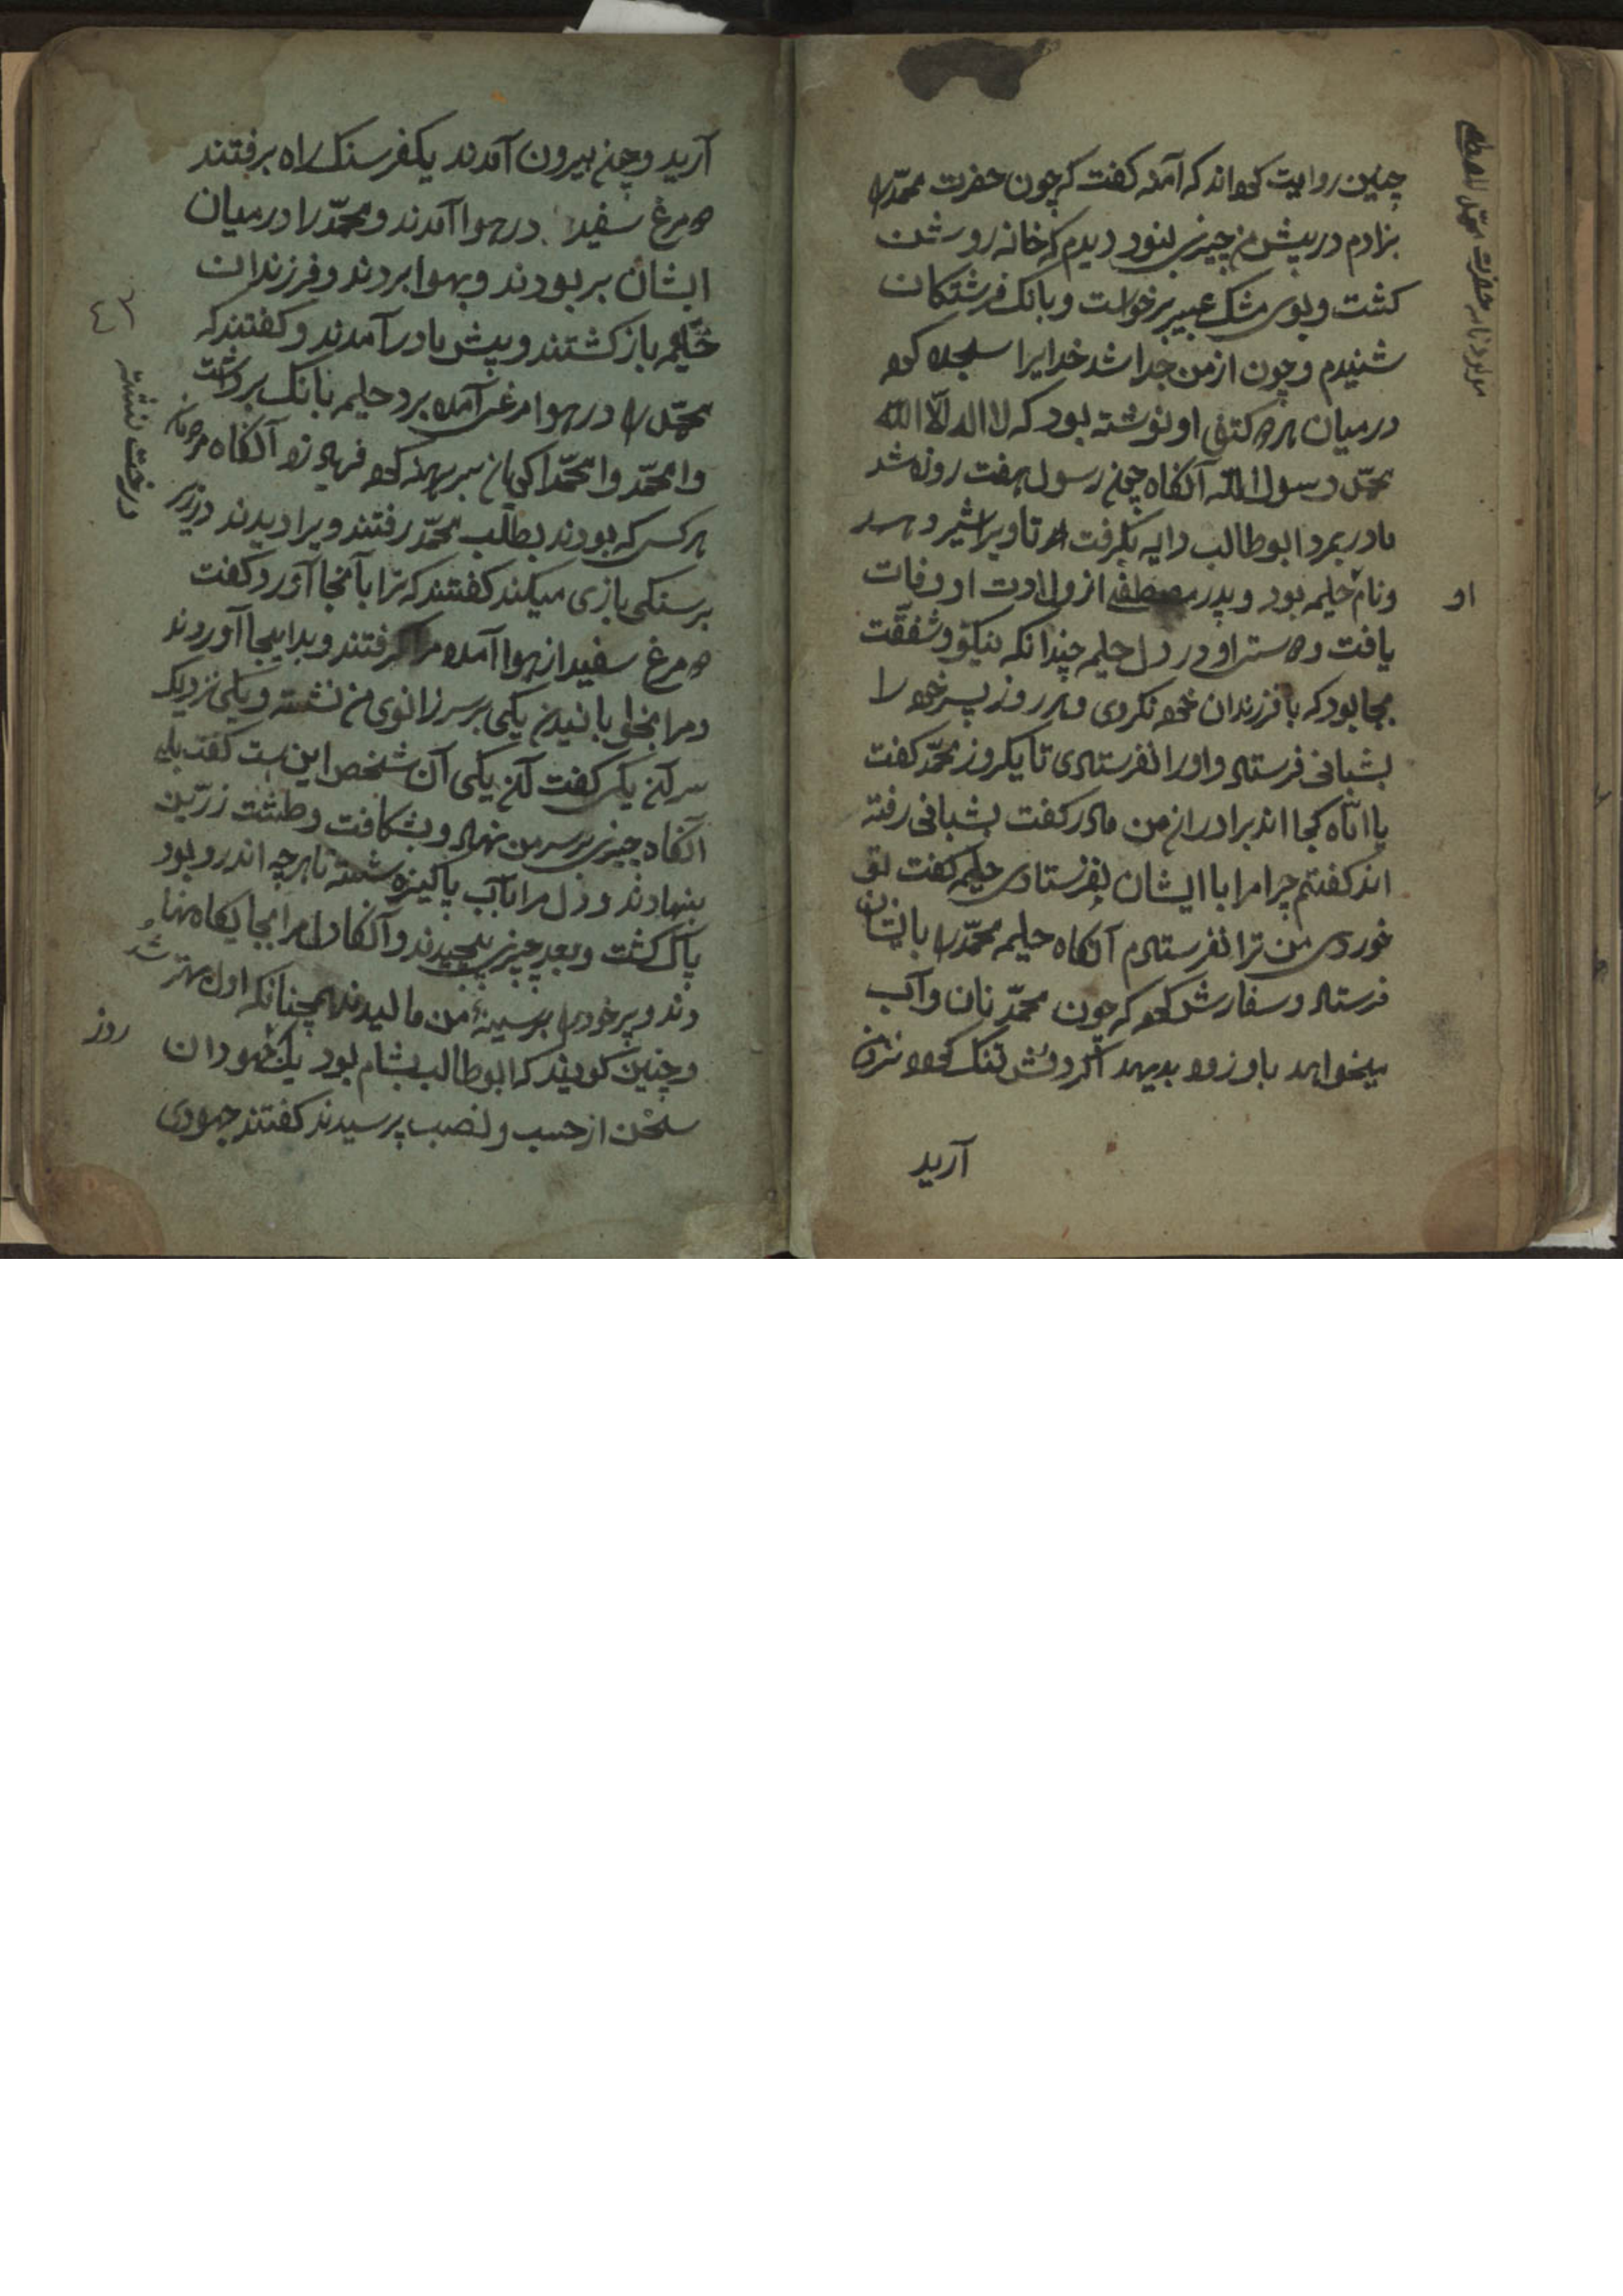 مولود نامه حضرت محمد المصطفی
چنین روایت کرده‌اند که آمنه کفت که چون حضرت محمّد را
بزادم در پیش من چیزی بنود دیدم که خانه روشن
کشت و بوی مشک عبیر برخواست و بانک فرشتکان
شنیدم و چون از من جدا شد خدایرا سجده کرد
در میان هر دو کتف او نوشته بود که لا اله الّا الله
محمّد رسول الله آنکاه چون رسول هفت روزه شد
مادر بمرد ابوطالب دایه بکرفت تا ویرا شیر دهد
و نام حلیمه بود و پدر مصطفی از ولادت او وفات
او
یافت و دوستی او در دل حلیمه چندانکه نیکو و شفقّت
بجا بود که با فرزندان خود نکردی و هر روز پسر خود را
بشبانی فرستاد و اورا نفرستادی تا یکروز محمّد کفت
یا امّاه کجا اند برادران من مادر کفت بشبانی رفته
اند کفتم چرا مرا با ایشان نفرستادی حلیمه کفت تو
خوردی من ترا نفرستادم آنکاه حلیمه محمّد را با ایشان
فرستاد و سفارش کرد که چون محمّد نان و آب
بیخواهد باو زود بدهید اکر دلش تنک کرد نزد من
آرید
آرید و چون بیرون آمدند یکفرسنک راه برفتند
دو مرغ سفید در هوا آمدند و محمّد را در میان
ایشان بر بودند و بهوا بردند و فرزندان
٤٢
حلیمه باز کشتند و پیش مادر آمدند و کفتند که
محمّد را در هوا مرغی آمده برد حلیمه بانک برداشت
وا محمّد وا محمّدا کویان سر برهنه کرد فریاد زد آنکاه مردمان
هر کس که بودند بطلب محمّد رفتند ویرا دیدند در زیر
درخت نشسته
بر سنکی بازی میکند کفتند که ترا بآنجا آورد کفت
دو مرغ سفید از هوا آمده مرا کرفتند و بدایجا آوردند
و مرا بخوابانیدن یکی بر سر زانوی من نشسته و یکی نزدیک
سر آن یکی کفت آن یکی آن شخص این است کفت بلی
آنکاه چیزی بر سر من نهاد و بشکافت و طشت زرّین
بنهادند و دل مرا بآب پاکیزه شسته تا هرچه اندرو بود
پاک کشت و بعد چیزی پیچیدند و آنکاه دل مرا بجایکاه نها
دند و پر خود را بر سینهٔ من مالیدند همچنانکه اول بهتر شد
و چنین کویند که ابوطالب بشام بود یک جهودان
روز
سخن از حسب و نصب پرسیدند کفتند جهودی